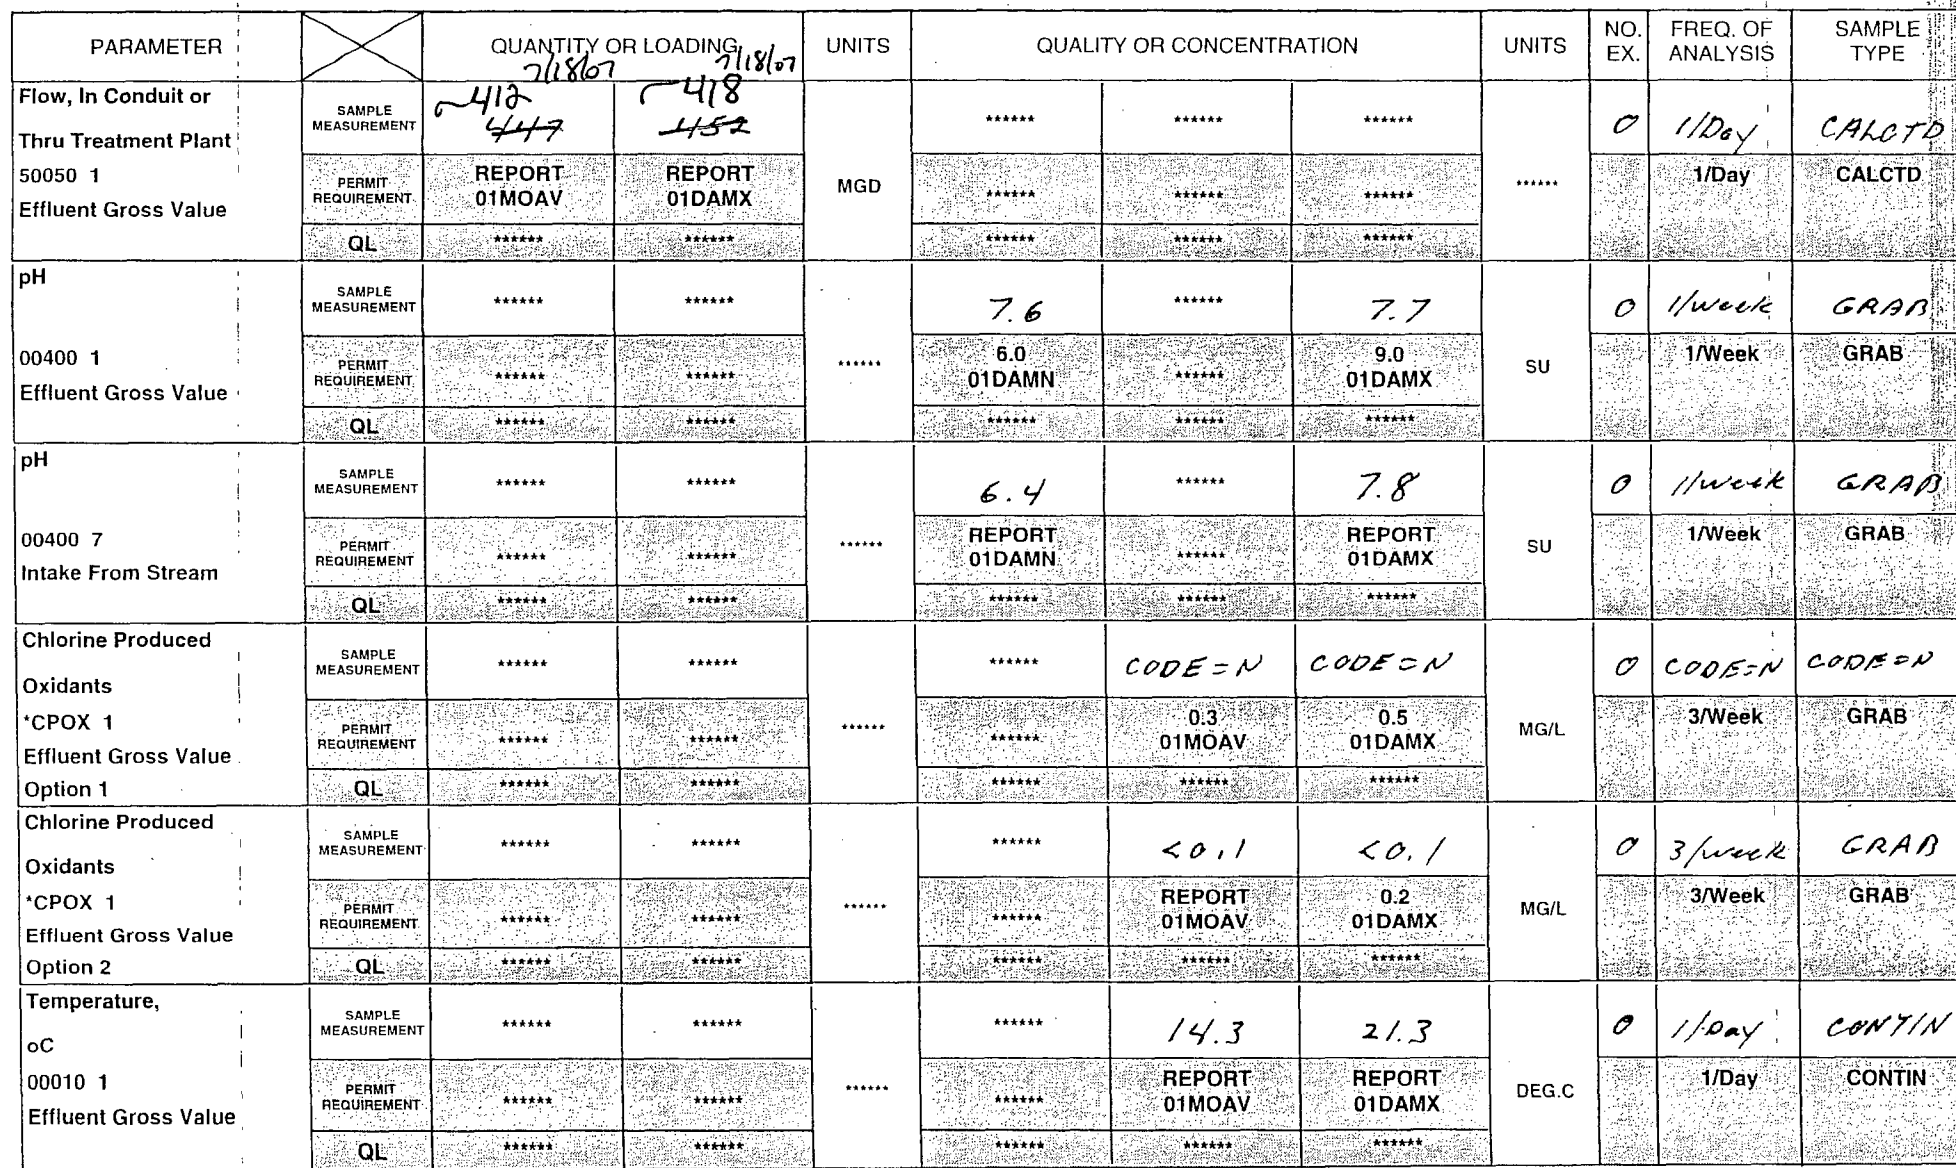 PARAMETER QUANTITY OR LOADING UNITS QUALITY OR CONCENTRATION UNITS NO. EX. FREQ. OF ANALYSIS SAMPLE TYPE
7/18/07 7/18/07
Flow, In Conduit or
Thru Treatment Plant
50050 1
Effluent Gross Value
SAMPLE MEASUREMENT ~412 447 ~418 452 MGD ****** ****** ****** ****** 0 1/Day CALCTD
PERMIT REQUIREMENT REPORT 01MOAV REPORT 01DAMX ****** ****** ****** 1/Day CALCTD
QL ****** ****** ****** ****** ******
pH
00400 1
Effluent Gross Value
SAMPLE MEASUREMENT ****** ****** ****** 7.6 ****** 7.7 SU 0 1/Week GRAB
PERMIT REQUIREMENT ****** ****** 6.0 01DAMN ****** 9.0 01DAMX 1/Week GRAB
QL ****** ****** ****** ****** ******
pH
00400 7
Intake From Stream
SAMPLE MEASUREMENT ****** ****** ****** 6.4 ****** 7.8 SU 0 1/week GRAB
PERMIT REQUIREMENT ****** ****** REPORT 01DAMN ****** REPORT 01DAMX 1/Week GRAB
QL ****** ****** ****** ****** ******
Chlorine Produced
Oxidants
*CPOX 1
Effluent Gross Value
Option 1
SAMPLE MEASUREMENT ****** ****** ****** ****** CODE=N CODE=N MG/L 0 CODE=N CODE=N
PERMIT REQUIREMENT ****** ****** ****** 0.3 01MOAV 0.5 01DAMX 3/Week GRAB
QL ****** ****** ****** ****** ******
Chlorine Produced
Oxidants
*CPOX 1
Effluent Gross Value
Option 2
SAMPLE MEASUREMENT ****** ****** ****** ****** <0.1 <0.1 MG/L 0 3/week GRAB
PERMIT REQUIREMENT ****** ****** ****** REPORT 01MOAV 0.2 01DAMX 3/Week GRAB
QL ****** ****** ****** ****** ******
Temperature,
oC
00010 1
Effluent Gross Value
SAMPLE MEASUREMENT ****** ****** ****** ****** 14.3 21.3 DEG.C 0 1/Day CONTIN
PERMIT REQUIREMENT ****** ****** ****** REPORT 01MOAV REPORT 01DAMX 1/Day CONTIN
QL ****** ****** ****** ****** ******